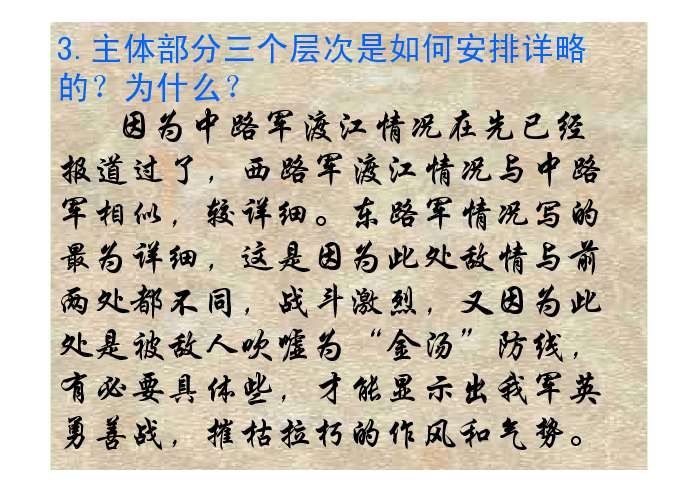 3.主体部分三个层次是如何安排详略
的？为什么？
因为中路军渡江情况在先已经
报道过了，西路军渡江情况与中路
军相似，较详细。东路军情况写的
最为详细，这是因为此处敌情与前
两处都不同，战斗激烈，又因为此
处是被敌人吹嘘为“金汤”防线，
有必要具体些，才能显示出我军英
勇善战，摧枯拉朽的作风和气势。